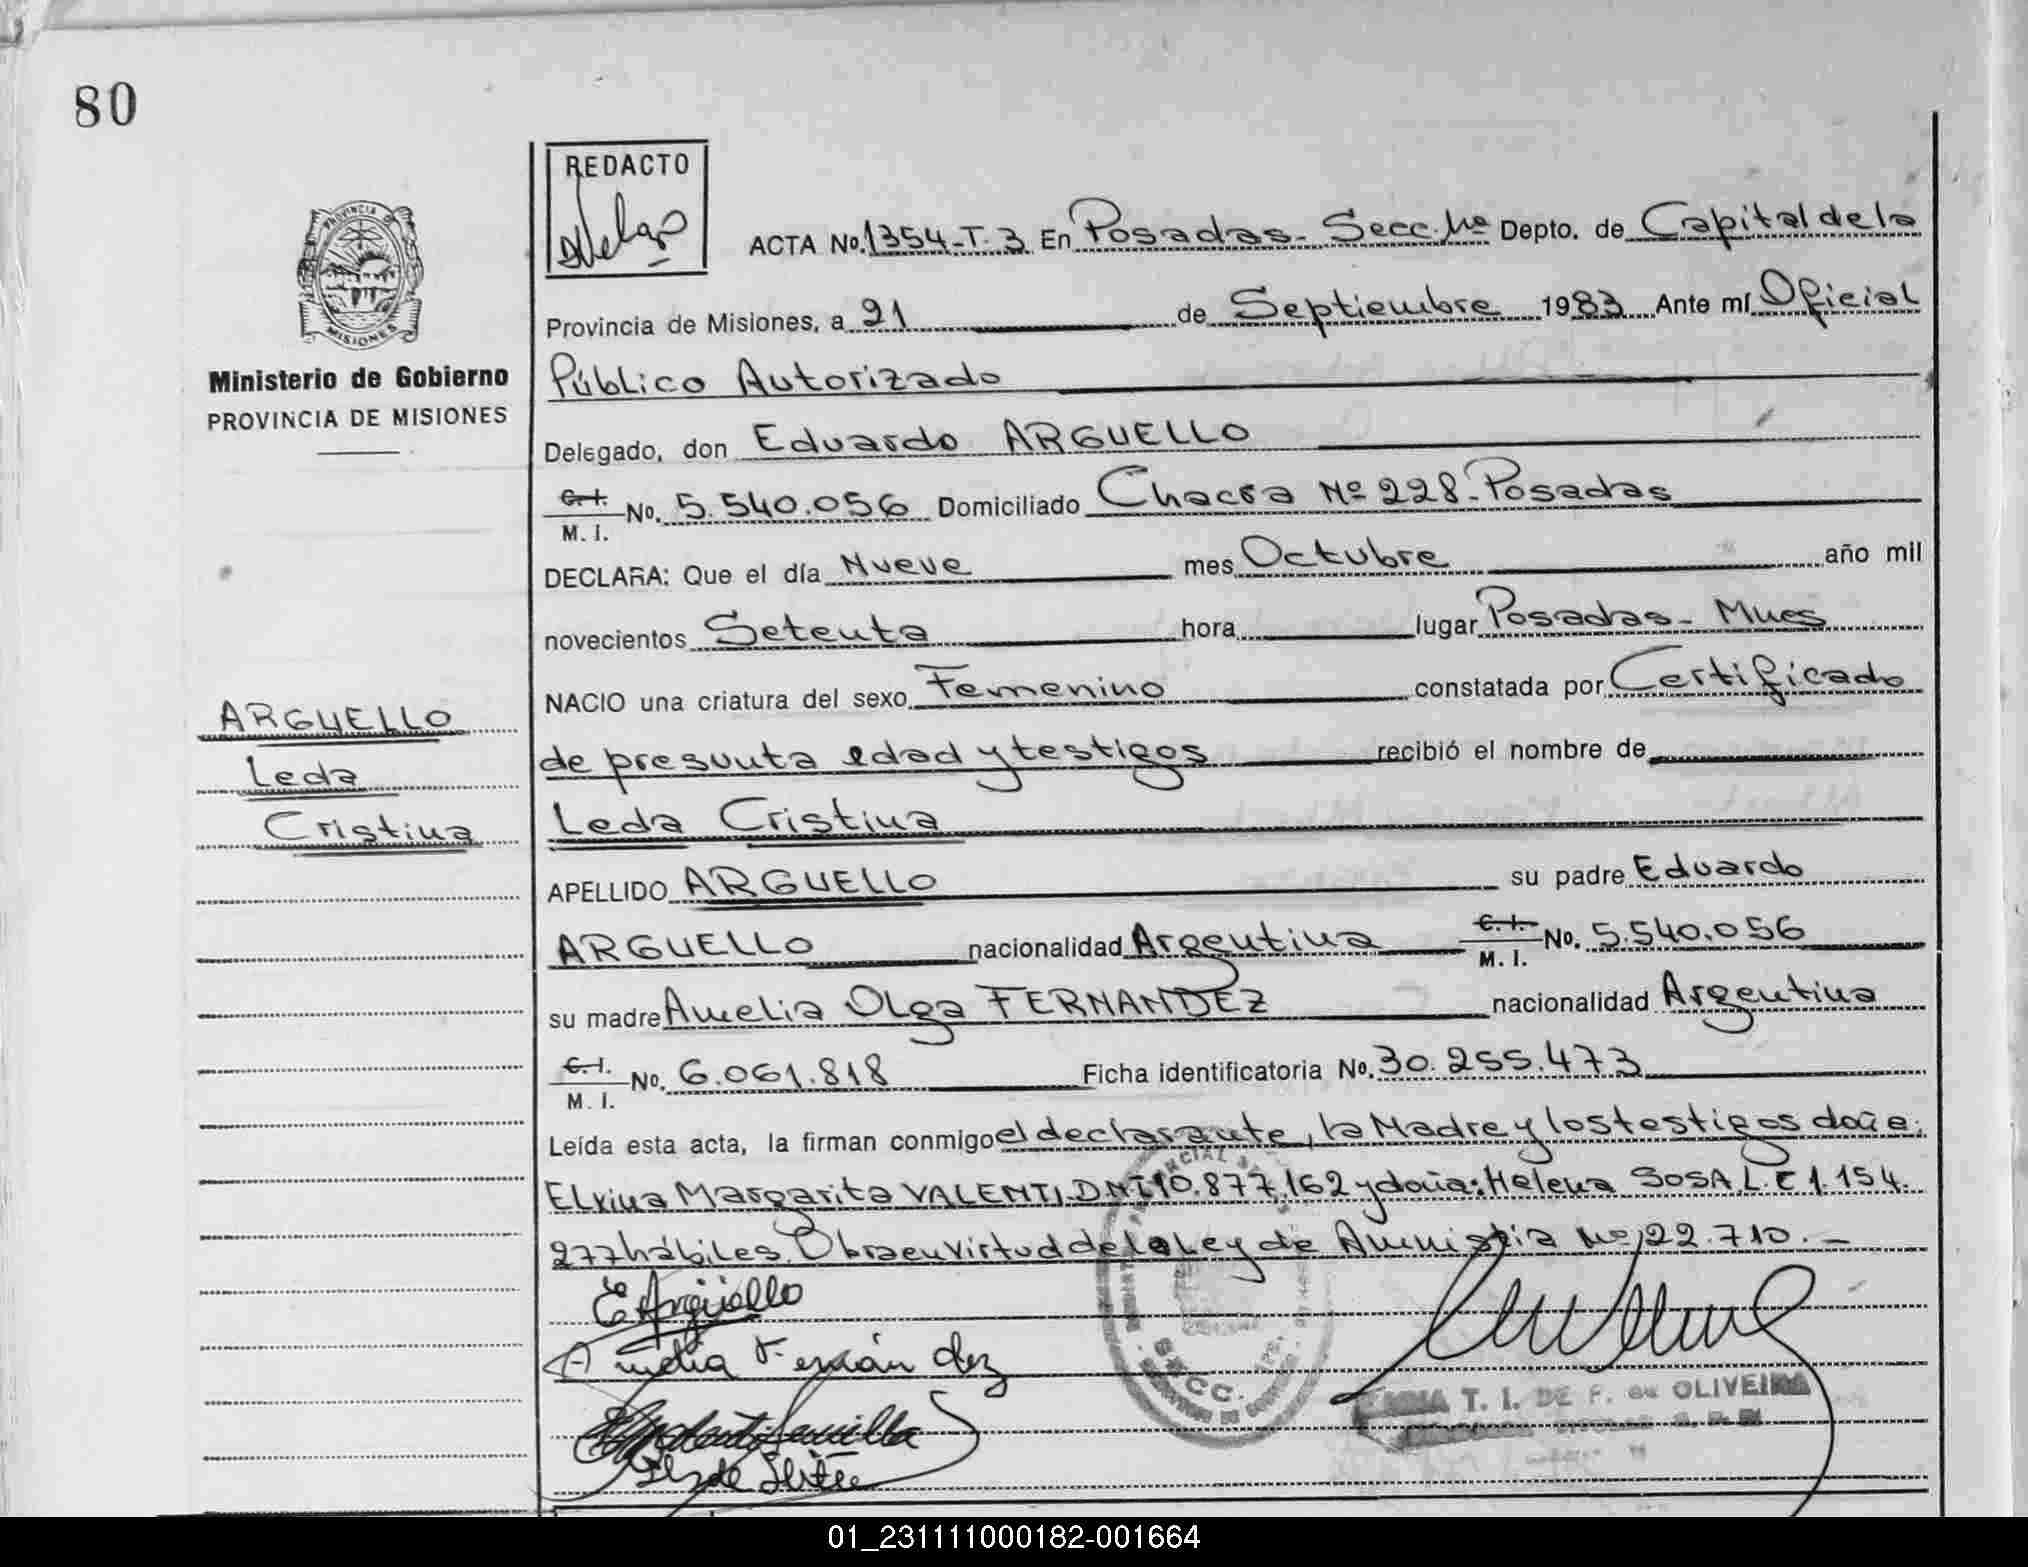 80
REDACTO
ACTA No. 1354-T.3 En Posadas- Secc. Depto. de Capital de la
PROVINCIA DE MISIONES
Provincia de Misiones, a 21 de Septiembre 1983 Ante mí Oficial
Ministerio de Gobierno
PROVINCIA DE MISIONES
Público Autorizado
Delegado, don Eduardo ARGUELLO
C.I. M. I. No. 5.540.056 Domiciliado Chacra Nº 228-Posadas
DECLARA: Que el día Nueve mes Octubre año mil
novecientos Setenta hora lugar Posadas- Mnes
NACIO una criatura del sexo Femenino constatada por Certificado
ARGUELLO
Leda
Cristina
de presunta edad y testigos recibió el nombre de
Leda Cristina
APELLIDO ARGUELLO su padre Eduardo
ARGUELLO nacionalidad Argentina C.I. M. I. No. 5.540.056
su madre Amelia Olga FERNANDEZ nacionalidad Argentina
C.I. M. I. No. 6.061.818 Ficha identificatoria No. 30.255.473
Leída esta acta, la firman conmigo el declarante, la Madre y los testigos doña:
Elvina Margarita VALENTI, DNI 10.877.162 y doña: Helena SOSA, L.E 1.154.
277 hábiles. Obra en virtud de la Ley de Amnistia Nº 22.710.-
E Argüello
Amelia Fernández
SECC.
T. I. DE F. de OLIVEIRA
01_231111000182-001664